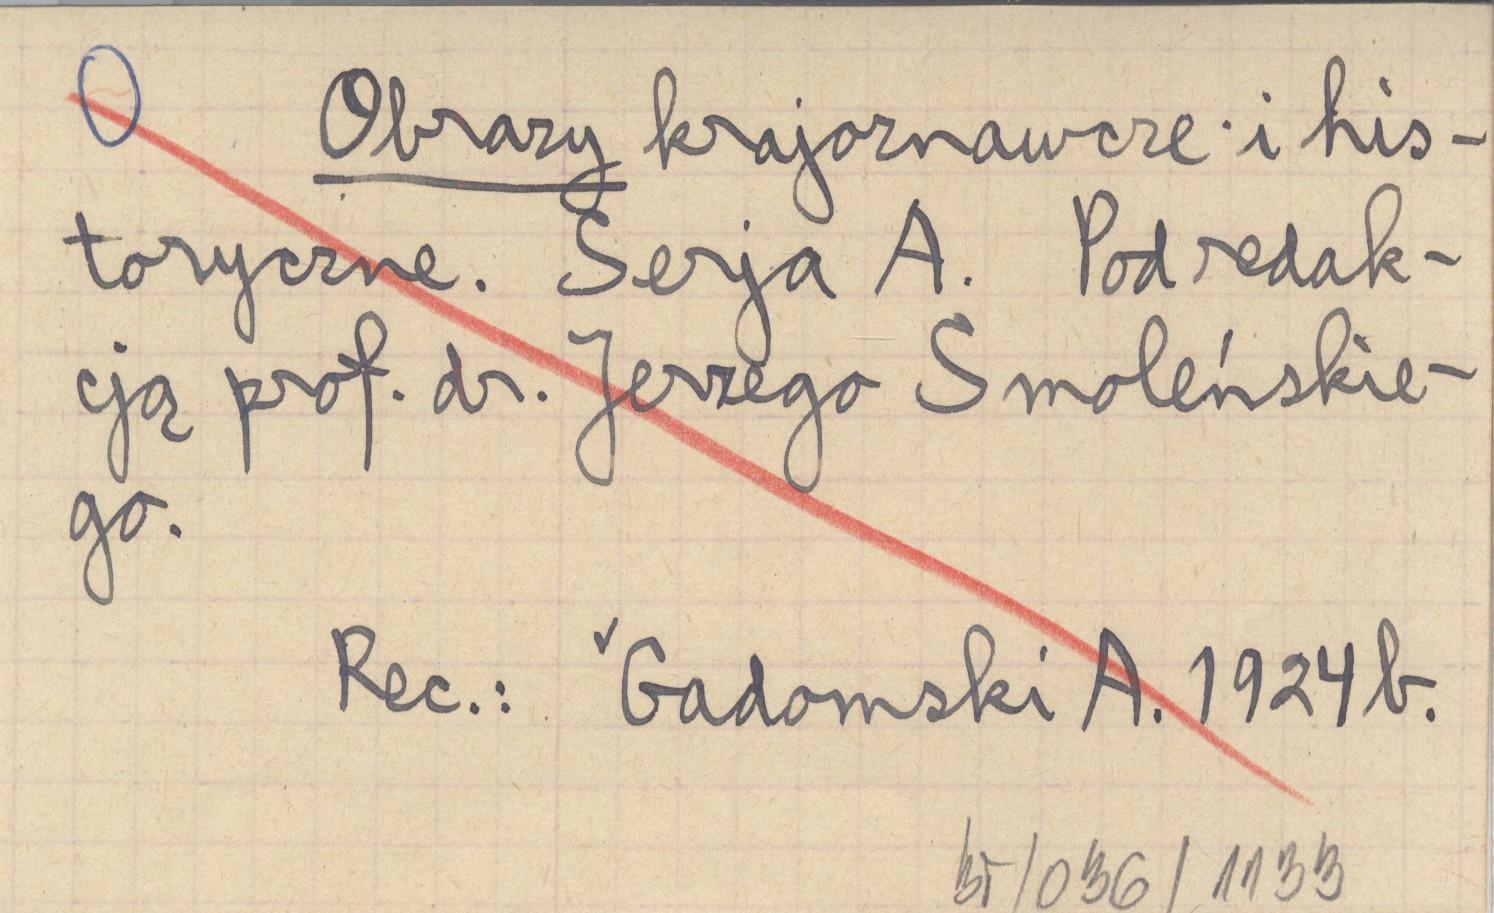 Obrazy krajoznawcze i his-
toryczne. Serja A. Pod redak-
cją prof. dr. Jerzego Smoleńskie-
go.
Rec.: ✓Gadomski A. 1924 b.
/036/1133